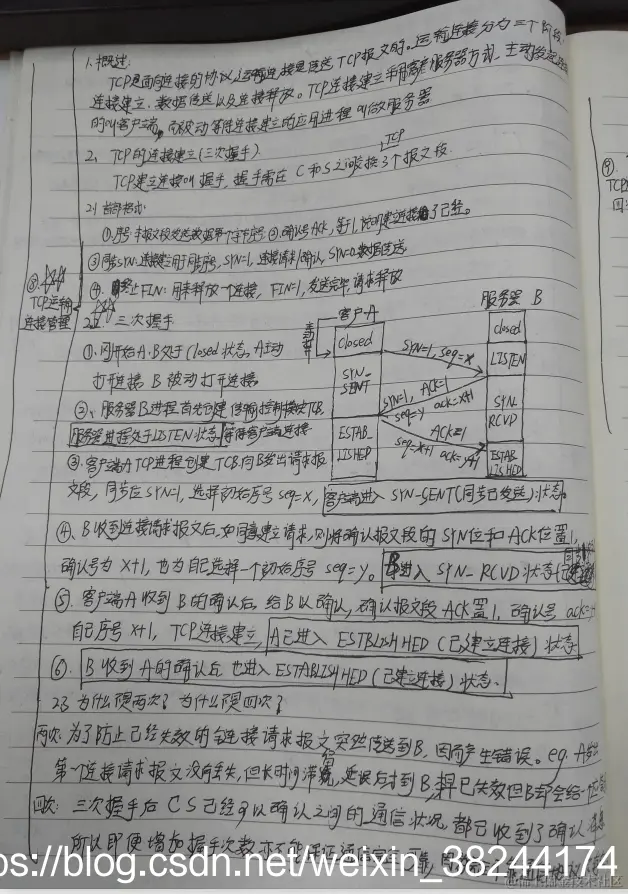 1. 概述:
TCP是面向连接的协议,运输连接是传送TCP报文的。运输连接分为三个阶段
连接建立、数据传送以及连接释放。TCP连接建立采用客户服务器方式,主动发起连接
的叫客户端,而被动等待连接建立的应用进程叫做服务器
2、TCP的连接建立(三次握手)
TCP
TCP建立连接叫握手,握手需在C和S之间交换3个报文段.
2.1 首部格式:
①序号:本报文段发送数据第一个字节序号.②确认号Ack,等于1,说明建立连接了已经。
③同步SYN:连接建立用于同步序,SYN=1,连接请求/确认,SYN=0数据传送
④.终止FIN:用来释放一个连接,FIN=1,发送完毕,请求释放
③
TCP运输
连接管理
2.2!三次握手
客户A
服务器 B
主动打开
closed
closed
SYN=1, seq=x
LISTEN
①.刚开始A.B处于closed状态,A主动
打开连接 B被动打开连接
SYN-SENT
SYN=1, ACK=1
seq=y ack=x+1
SYN-RCVD
②、服务器B进程首先创建传输控制模块TCB.
服务器进程处于LISTEN状态,等待客户端连接
ESTABLISHED
ACK=1
seq=x+1 ack=y+1
ESTABLISHED
③.客户端A TCP进程创建TCB.向B发出请求报
文段,同步位SYN=1,选择初始序号seq=x,客户端进入SYN-SENT(同步已发送)状态
④、B收到连接请求报文后,如同意建立请求,则将确认报文段的SYN位和ACK位置1,
确认号为x+1,也为自己选择一个初始序号seq=y。B进入SYN-RCVD状态
⑤.客户端A收到B的确认后,给B以确认,确认报文段ACK置1,确认号ack=
自己序号x+1,TCP连接建立,A已进入ESTBLISHHED(已建立连接)状态
⑥.B收到A的确认后也进入ESTABLISHHED(已建立连接)状态.
2.3 为什么不是两次?为什么不是四次?
两次:为了防止已经失效的链接请求报文突然传送到B,因而产生错误。eg.A发出
第一个连接请求报文没有丢失,但长时间滞留,延误后才到B,早已失效但B却会给一
四次:三次握手后CS已经可以确认之间的通信状况,都已收到了确认
所以即便增加握手次数亦不能保证通信完全可靠,
TCP
四
ps://blog.csdn.net/weixin_38244174